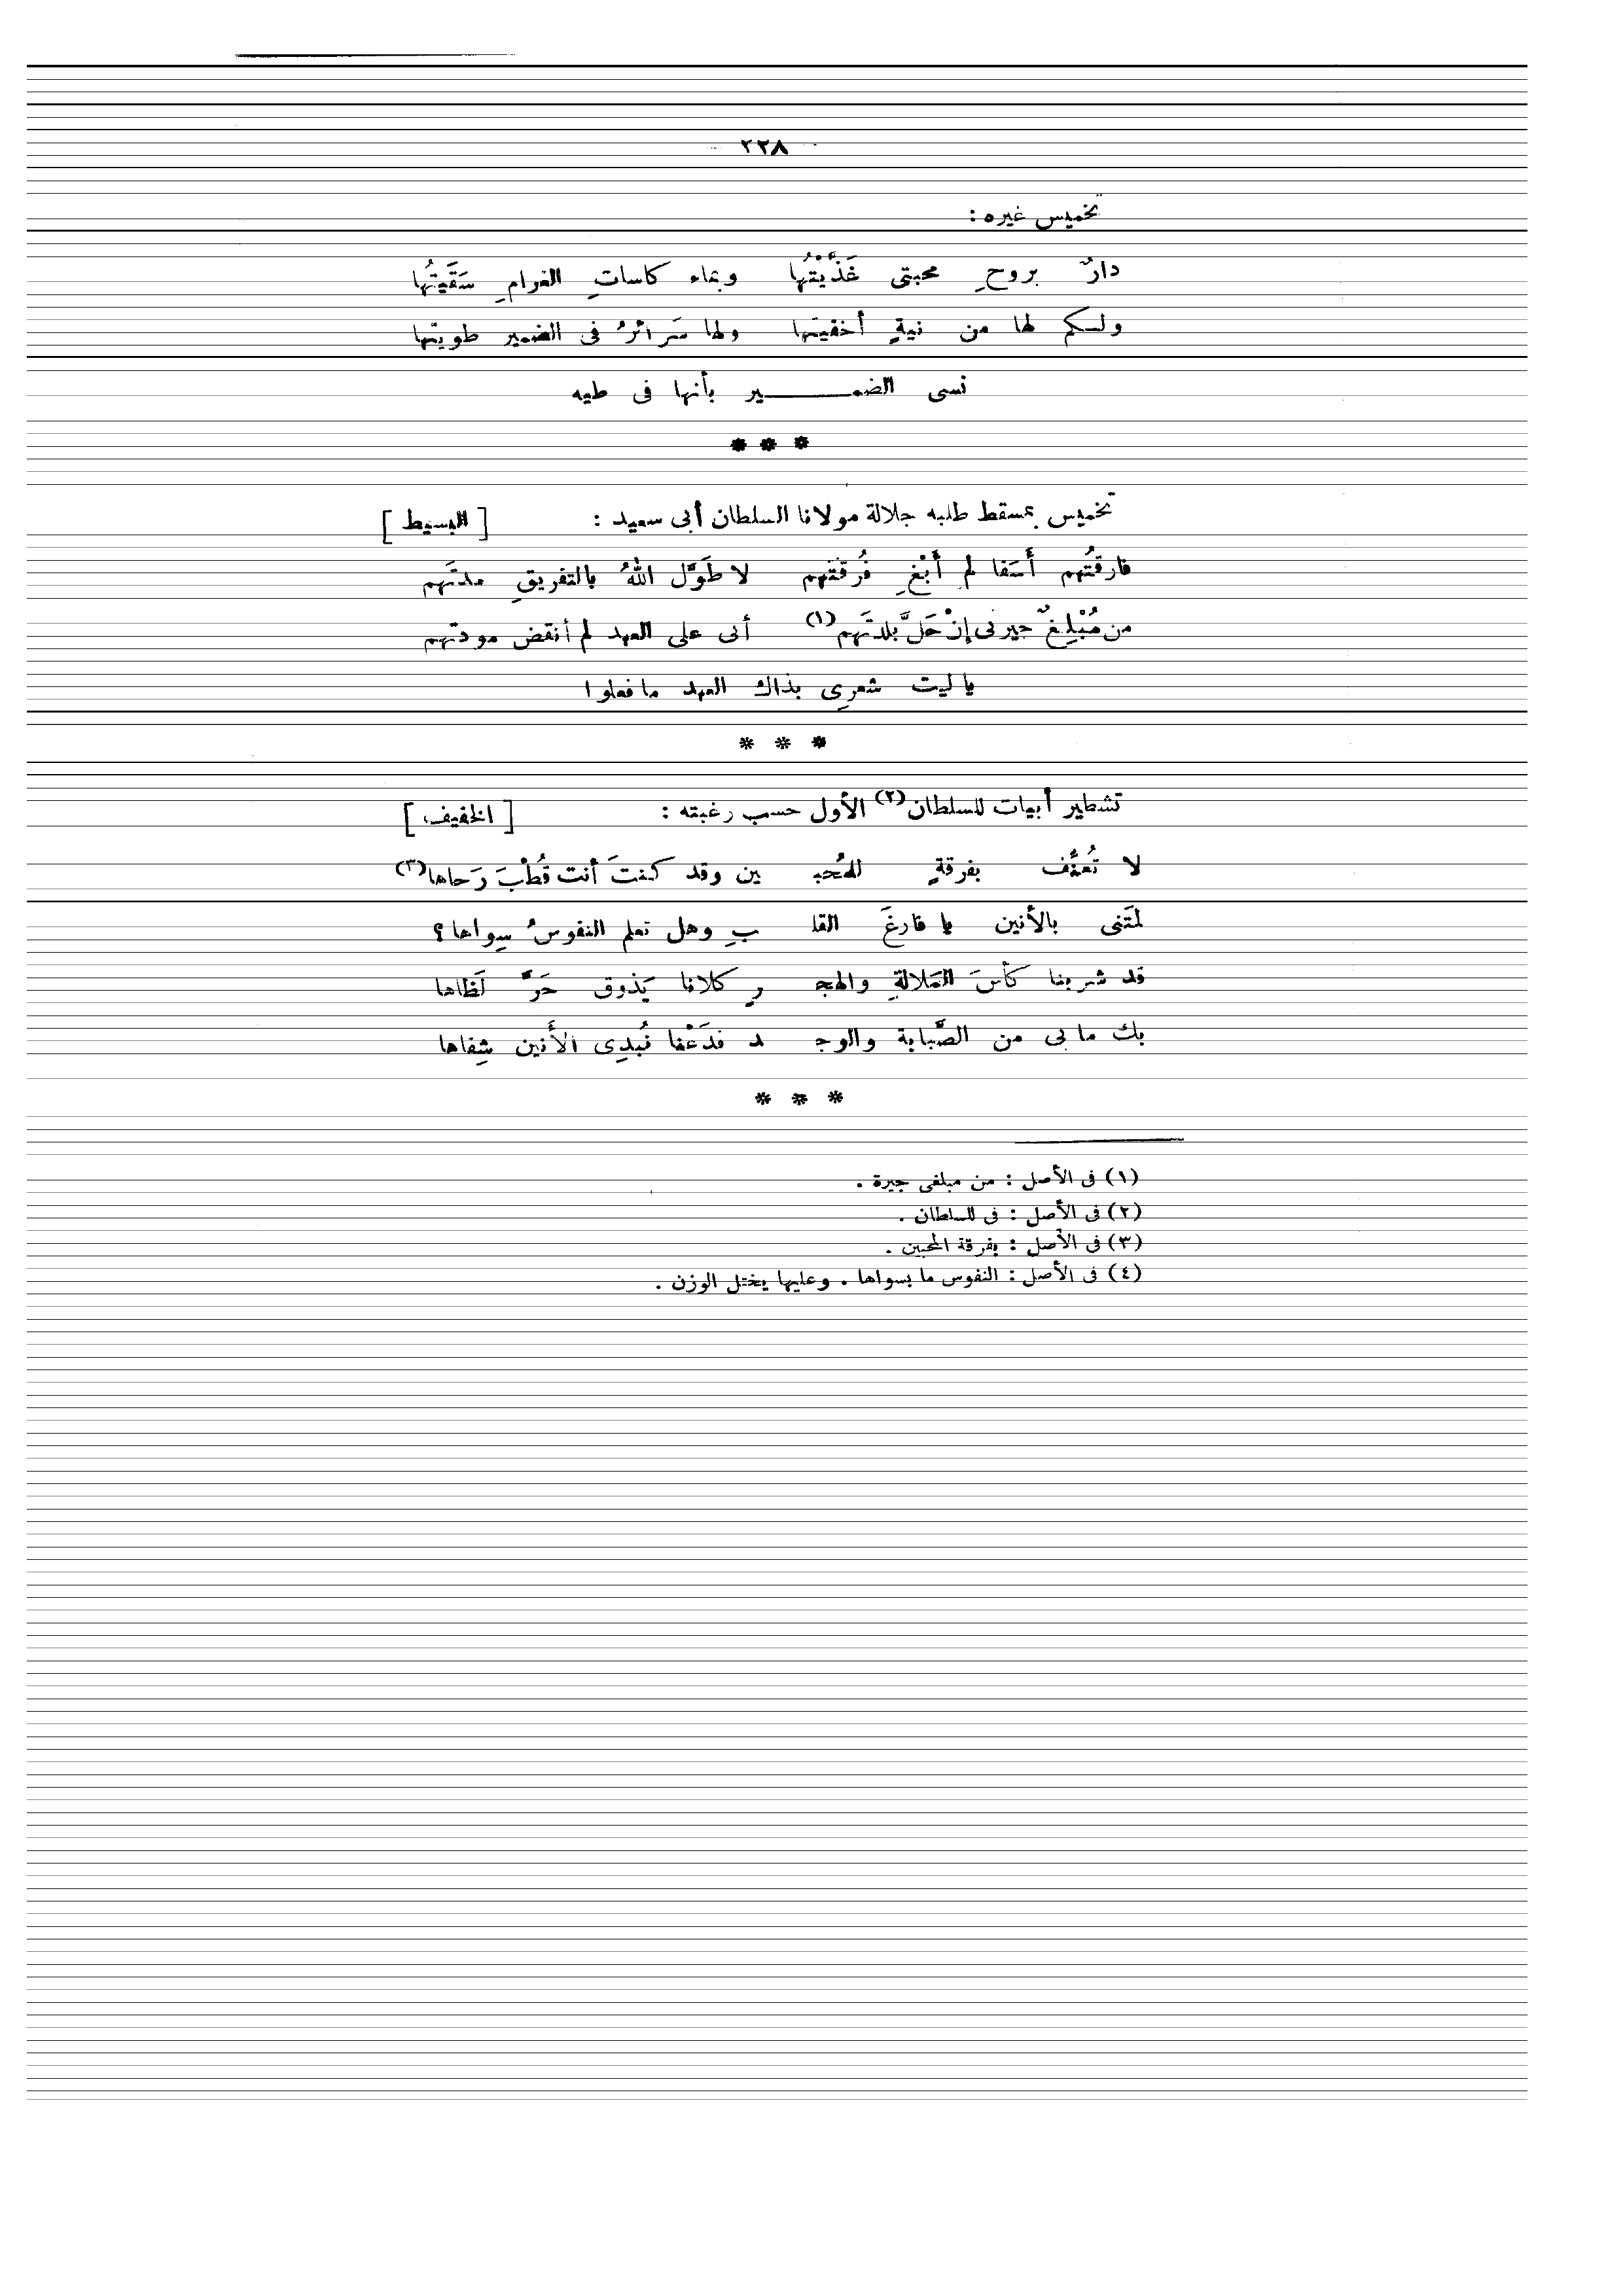 ٢٢٨
تخميس غيره :
دارٌ بروحِ محبتى غَذَّيْتُها وبماء كاساتِ الغرامِ سَقَيتُها
ولكم لها من نيةٍ أخفيتَها ولها سَرائرُ فى الضمير طويتها
نسى الضمـــــير بأنها فى طيه
* * *
تخميس بمسقط طلبه جلالة مولانا السلطان أبى سعيد : [ البسيط ]
فارقتُهم أَسَفا لم أَبْغِ فُرقتهم لا طَوَّل اللهُ بالتفريقِ مدتَهم
من مُبْلِغٌ جيرنى إنْ حَلَّ بلدتَهم (١) أنى على العهد لم أنقض مودتهم
يا ليت شعرِى بذاك العهد ما فعلوا
* * *
تشطير أبيات للسلطان (٢) الأول حسب رغبته : [ الخفيف ]
لا تُعنَّف بفرقةٍ للمُحبـ ين وقد كنتَ أنت قُطْبَ رَحاها (٣)
لمتَنى بالأنين يا فارغَ القلـ ـبِ وهل تعلم النفوسُ سِواها ؟
قد شربنا كأسَ المَلالةِ والهجـ ـرِ كلانا يَذوق حَرَّ لَظاها
بك ما بى من الصَّبابة والوجـ ـد فدَعْنا نُبدِى الأَنين شِفاها
* * *
(١) فى الأصل : من مبلغى جيرة .
(٢) فى الأصل : فى للسلطان .
(٣) فى الأصل : بفرقة المحبين .
(٤) فى الأصل : النفوس ما بسواها . وعليها يختل الوزن .